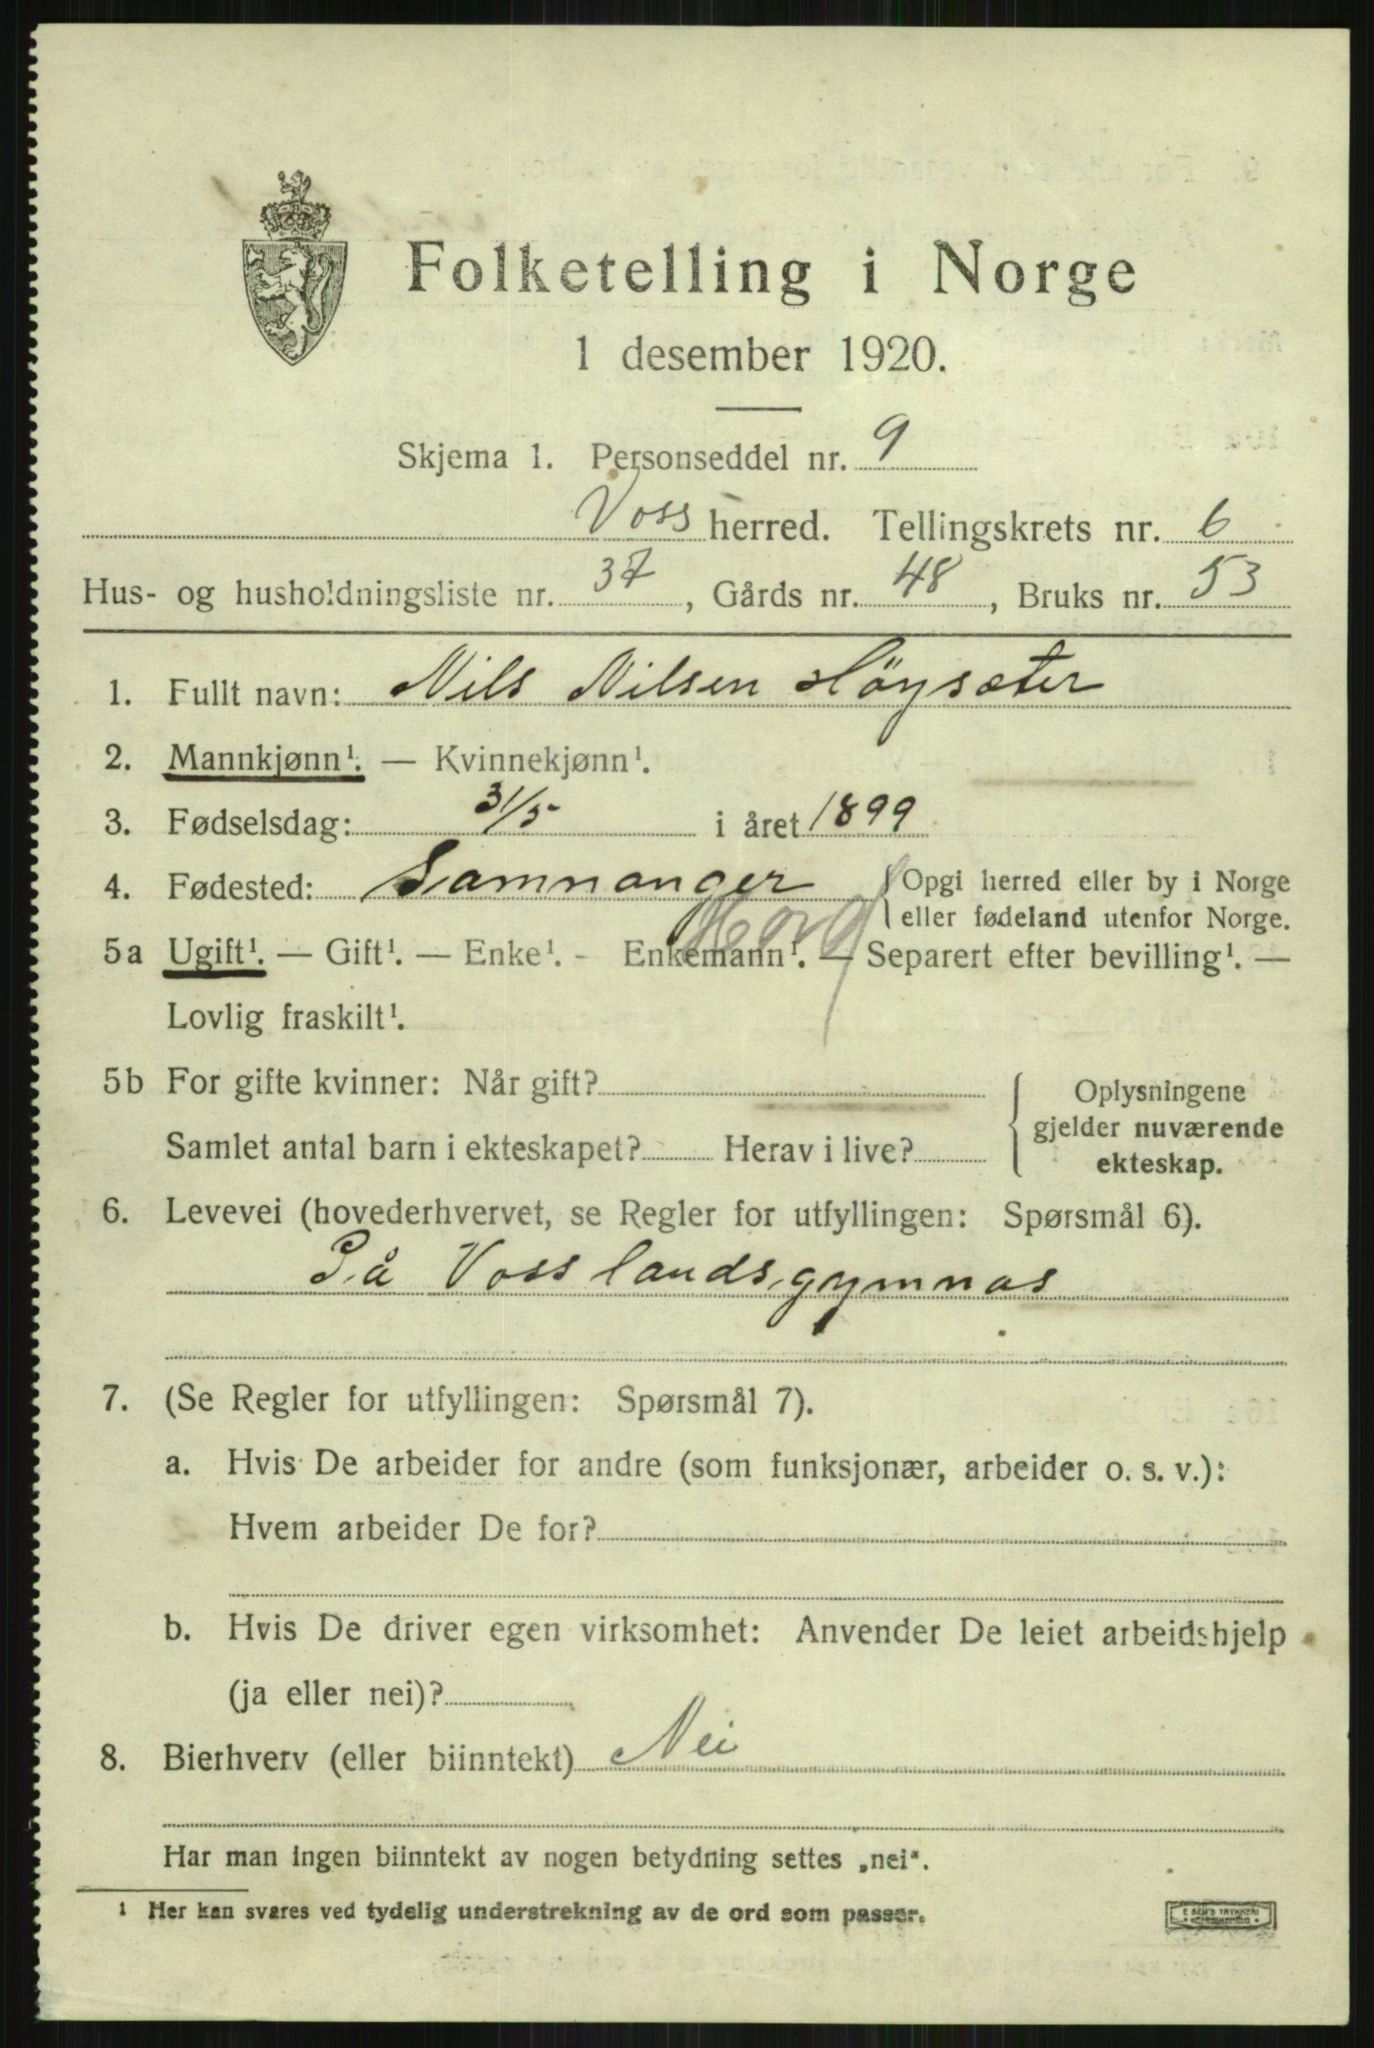 Folketelling i Norge
1 desember 1920.
Skjema 1. Personseddel nr. 9
Voss herred. Tellingskrets nr. 6
Hus- og husholdningsliste nr. 37, Gårds nr. 48, Bruks nr. 53
1. Fullt navn: Nils Nilsen Höysæter
2. Mannkjønn¹. — Kvinnekjønn¹.
3. Fødselsdag: 31/5 i året 1899
4. Fødested: Samnanger { Opgi herred eller by i Norge
eller fødeland utenfor Norge.
Horg
5a Ugift¹. — Gift¹. — Enke¹. - Enkemann¹. — Separert efter bevilling¹. —
Lovlig fraskilt¹.
5b For gifte kvinner: Når gift?
Samlet antal barn i ekteskapet? Herav i live?
{ Oplysningene
gjelder nuværende
ekteskap.
6. Levevei (hovederhvervet, se Regler for utfyllingen: Spørsmål 6).
På Voss landsgymnas
7. (Se Regler for utfyllingen: Spørsmål 7).
a. Hvis De arbeider for andre (som funksjonær, arbeider o. s. v.):
Hvem arbeider De for?
b. Hvis De driver egen virksomhet: Anvender De leiet arbeidshjelp
(ja eller nei)?
8. Bierhverv (eller biinntekt) Nei
Har man ingen biinntekt av nogen betydning settes „nei“.
¹ Her kan svares ved tydelig understrekning av de ord som passer.